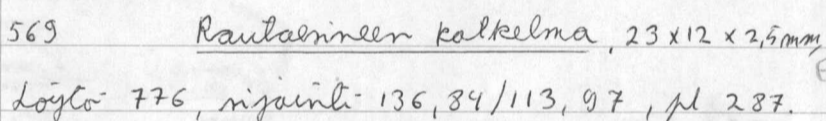 569 Rautaesineen katkelma, 23 x 12 x 2,5 mm,
Löytö 776, sijainti 136,84/113,97, pl 287.